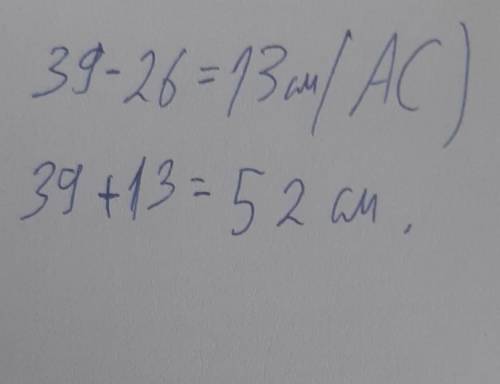 39-26=13см(АС)
39+13=52 см.